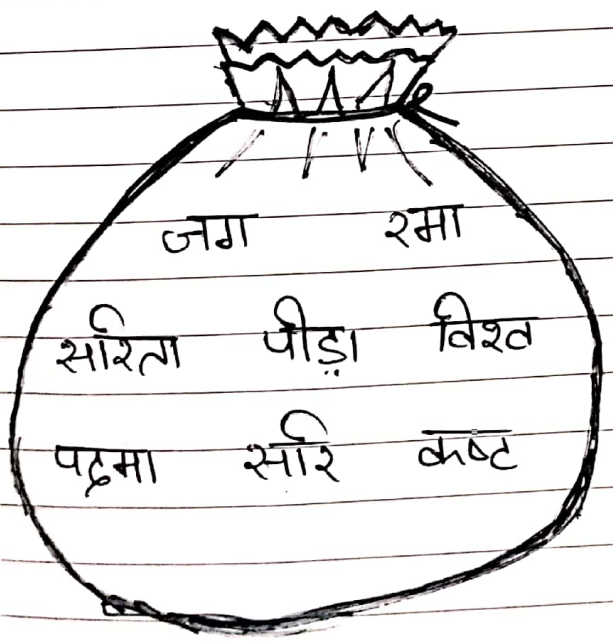 जग रमा
सरिता पीड़ा विश्व
पद्मा सरि कष्ट